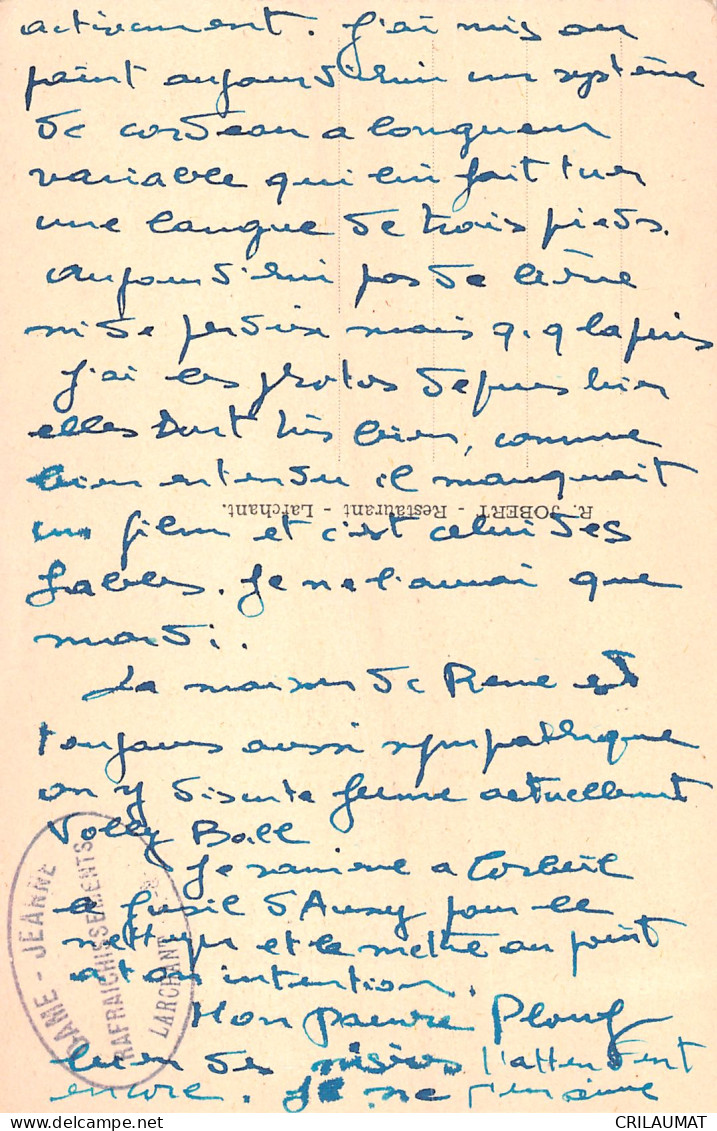 activement. J'ai mis au
point aujourd'hui un système
de cordeau a longueur
variable qui lui fait tirer
une langue de trois pieds.
Aujourd'hui pas de lièvre
ni de perdrix mais q.q lapins
J'ai les photos depuis hier
elles sont très bien, comme
bien entendu il manquait
un film et c'est celui des
sables. Je ne l'aurai que
mardi.
R. JOBERT - Restaurant - Larchant.
La maison de Rene est
toujours aussi sympathique
on y discute ferme actuellement
Volley Ball
Je ramène a Corbeil
le fusil d'Ausy pour le
nettoyer et le mettre au point
a ton intention.
Mon pauvre Plouf
bien des misères l'attendent
encore. Je ne
DAME - JEANNE
RAFRAICHISSEMENTS
LARCHANT
CRILAUMAT